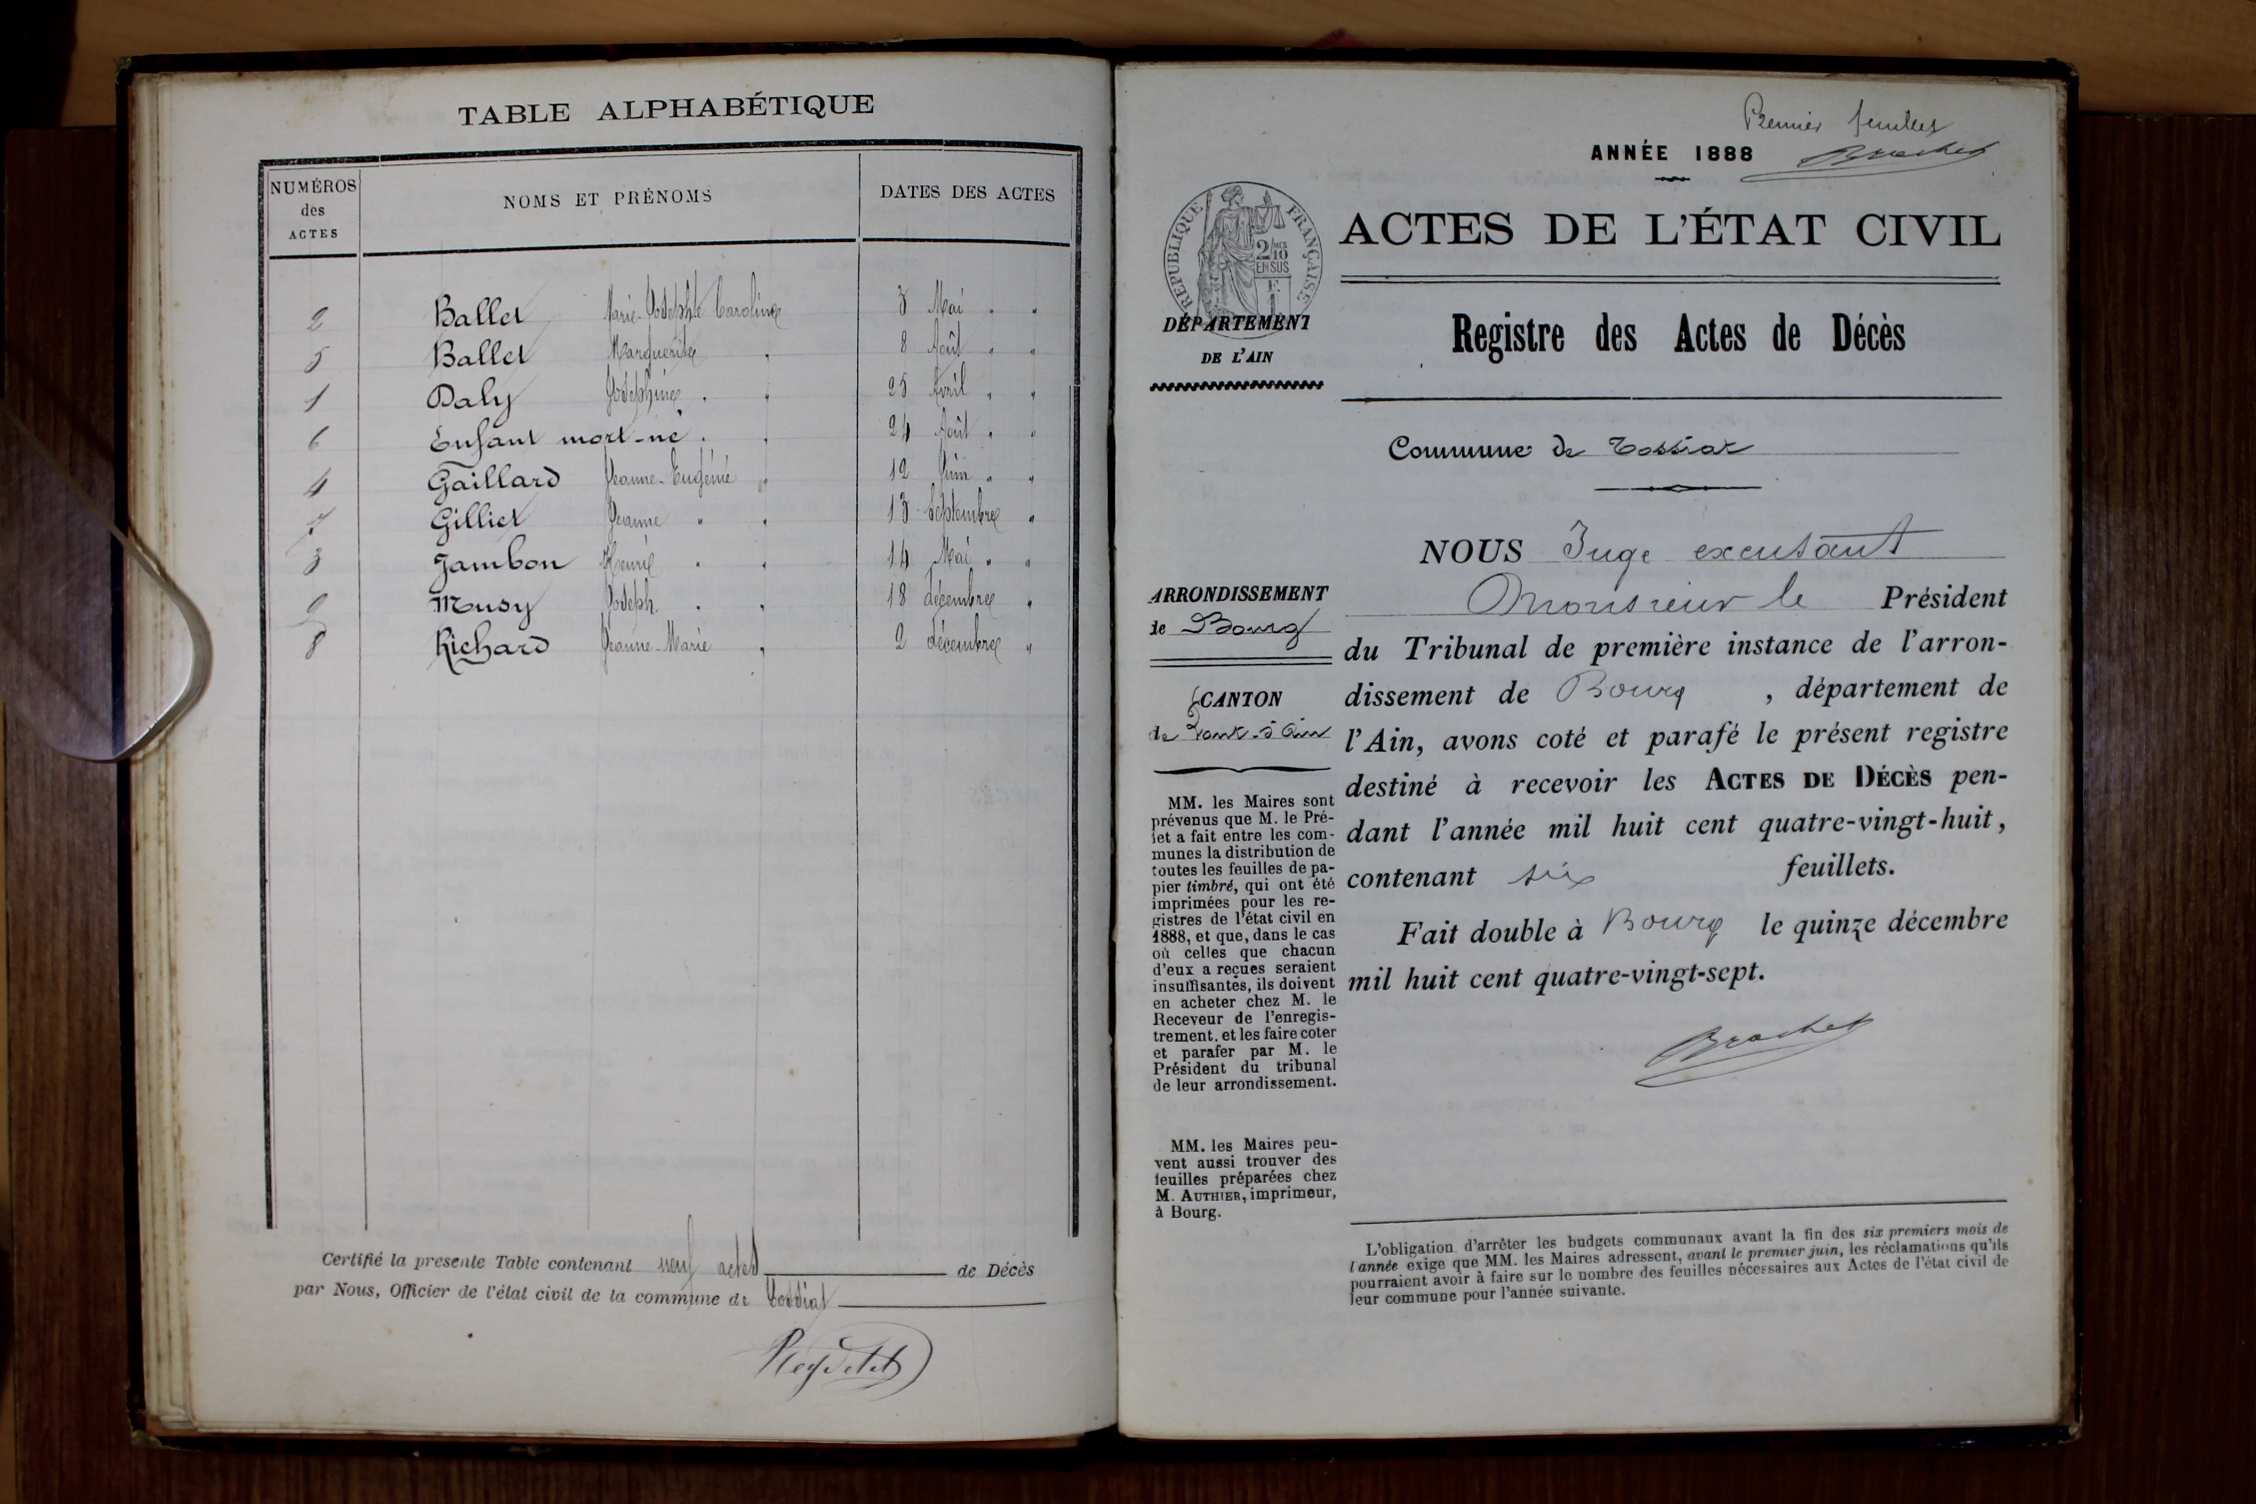 TABLE ALPHABÉTIQUE
NUMÉROS des ACTES
NOMS ET PRÉNOMS
DATES DES ACTES
2 Ballet Marie-Josephte Caroline 3 Mai " "
5 Ballet Marguerite " 8 Août " "
1 Daly Joséphine " " 25 Avril " "
6 Enfant mort-né " " 24 Août " "
4 Gaillard Jeanne-Eugénie " 12 Juin " "
7 Gilliet Jeanne " " 13 Septembre "
3 Jambon Henri " " 14 Mai " "
9 Musy Joseph " " 18 décembre "
8 Richard Jeanne-Marie " 2 décembre "
Certifié la presente Table contenant neuf actes de Décès
par Nous, Officier de l'état civil de la commune de Tossiat
Premier feuillet
ANNÉE 1888
Brochet
RÉPUBLIQUE FRANÇAISE
2/10 EN SUS
F. 1
ACTES DE L'ÉTAT CIVIL
DÉPARTEMENT
DE L'AIN
Registre des Actes de Décès
Commune de Tossiat
NOUS Juge excusant
Monsieur le Président
du Tribunal de première instance de l'arron-
dissement de Bourg, département de
l'Ain, avons coté et parafé le présent registre
destiné à recevoir les ACTES DE DÉCÈS pen-
dant l'année mil huit cent quatre-vingt-huit,
contenant six feuillets.
Fait double à Bourg le quinze décembre
mil huit cent quatre-vingt-sept.
Brochet
ARRONDISSEMENT
de Bourg
CANTON
de Pont-d'Ain
MM. les Maires sont
prévenus que M. le Pré-
fet a fait entre les com-
munes la distribution de
toutes les feuilles de pa-
pier timbré, qui ont été
imprimées pour les re-
gistres de l'état civil en
1888, et que, dans le cas
où celles que chacun
d'eux a reçues seraient
insuffisantes, ils doivent
en acheter chez M. le
Receveur de l'enregis-
trement, et les faire coter
et parafer par M. le
Président du tribunal
de leur arrondissement.
MM. les Maires peu-
vent aussi trouver des
feuilles préparées chez
M. AUTHIER, imprimeur,
à Bourg.
L'obligation d'arrêter les budgets communaux avant la fin des six premiers mois de
l'année exige que MM. les Maires adressent, avant le premier juin, les réclamations qu'ils
pourraient avoir à faire sur le nombre des feuilles nécessaires aux Actes de l'état civil de
leur commune pour l'année suivante.